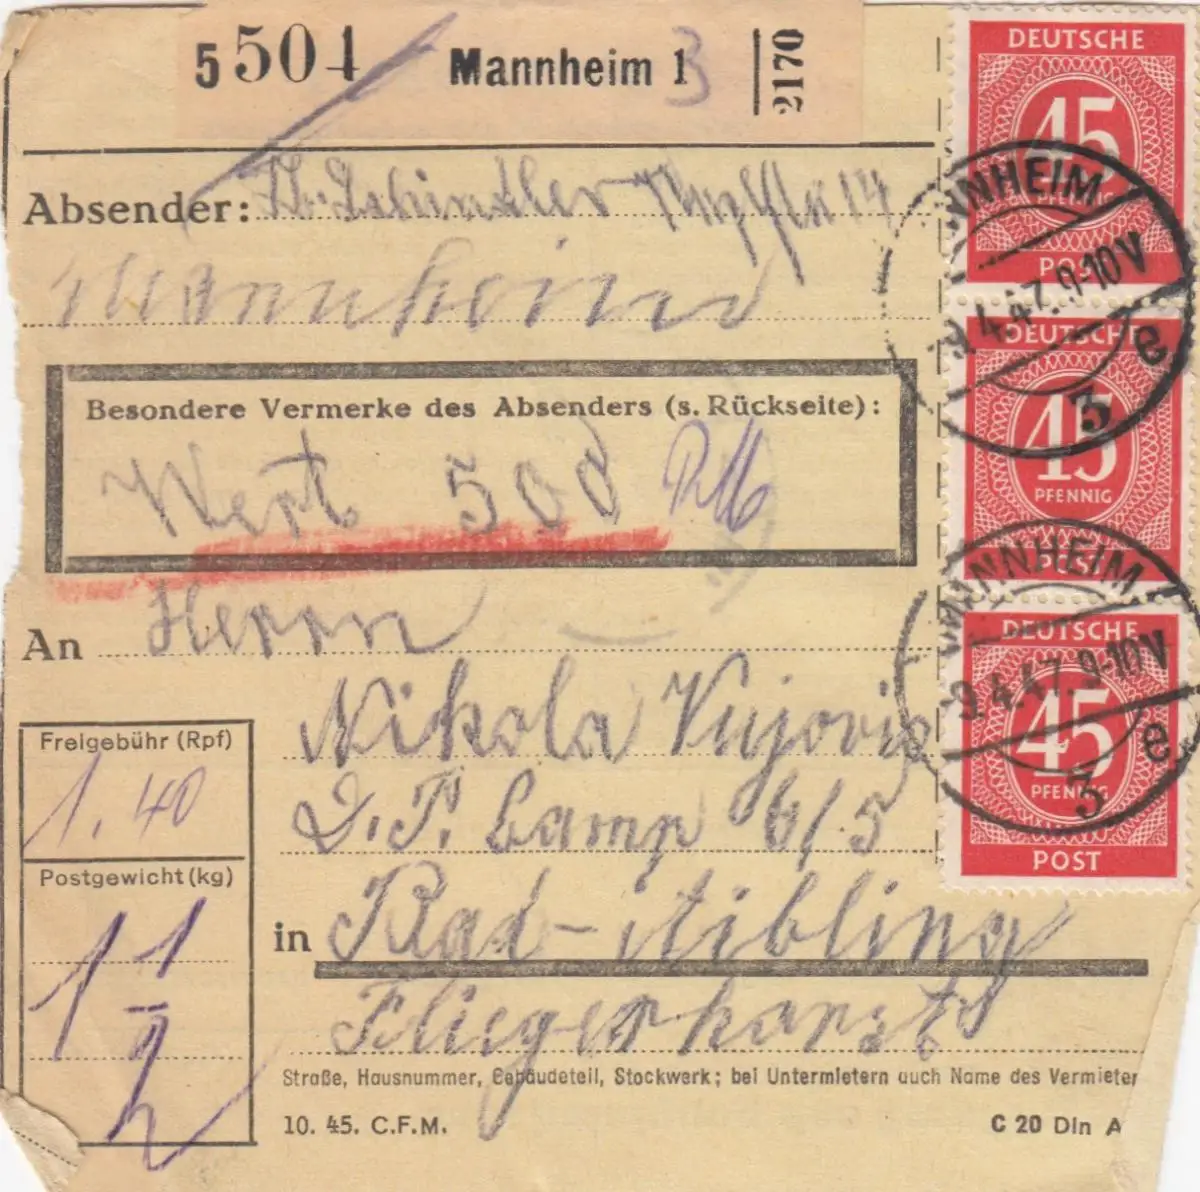 5 504 Mannheim 1 3 2170
Absender: Schindler 14
Mannheim
Besondere Vermerke des Absenders (s. Rückseite):
Wert 500 RM
An Herrn
Nikola Vujovic
D.P. Camp 6/5
in Bad-Aibling
Fliegerhorst
Straße, Hausnummer, Gebäudeteil, Stockwerk; bei Untermietern auch Name des Vermieter
10. 45. C.F.M.
C 20 Din A
Freigebühr (Rpf)
1.40
Postgewicht (kg)
1 1/2
DEUTSCHE
45
PFENNIG
POST
DEUTSCHE
45
PFENNIG
POST
DEUTSCHE
45
PFENNIG
POST
MANNHEIM
9.4.47.9-10V
3 e
MANNHEIM
9.4.47.9-10V
3 e